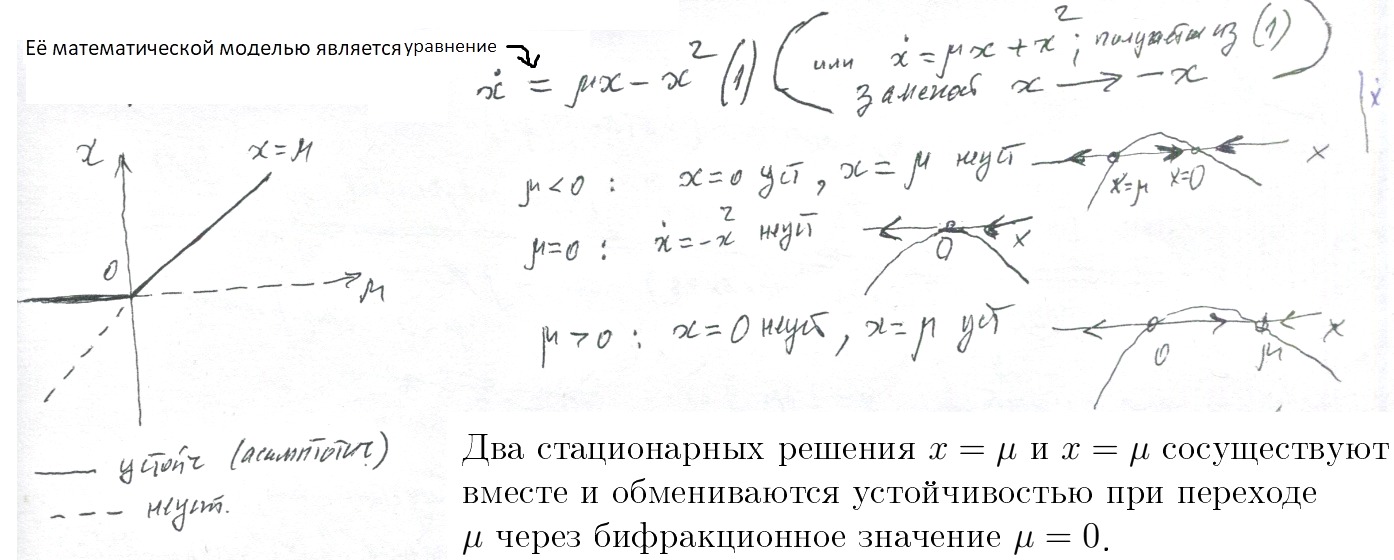 Её математической моделью является уравнение
ẋ = μx − x² (1) (или ẋ = μx + x²; получается из (1)
заменой x → −x)
ẋ
x
x = μ
0
μ
μ < 0 : x = 0 уст, x = μ неуст
x=μ x=0 x
μ = 0 : ẋ = −x² неуст
0 x
μ > 0 : x = 0 неуст, x = μ уст
0 μ x
—— устойч (асимптотич.)
– – – неуст.
Два стационарных решения x = μ и x = μ сосуществуют
вместе и обмениваются устойчивостью при переходе
μ через бифракционное значение μ = 0.